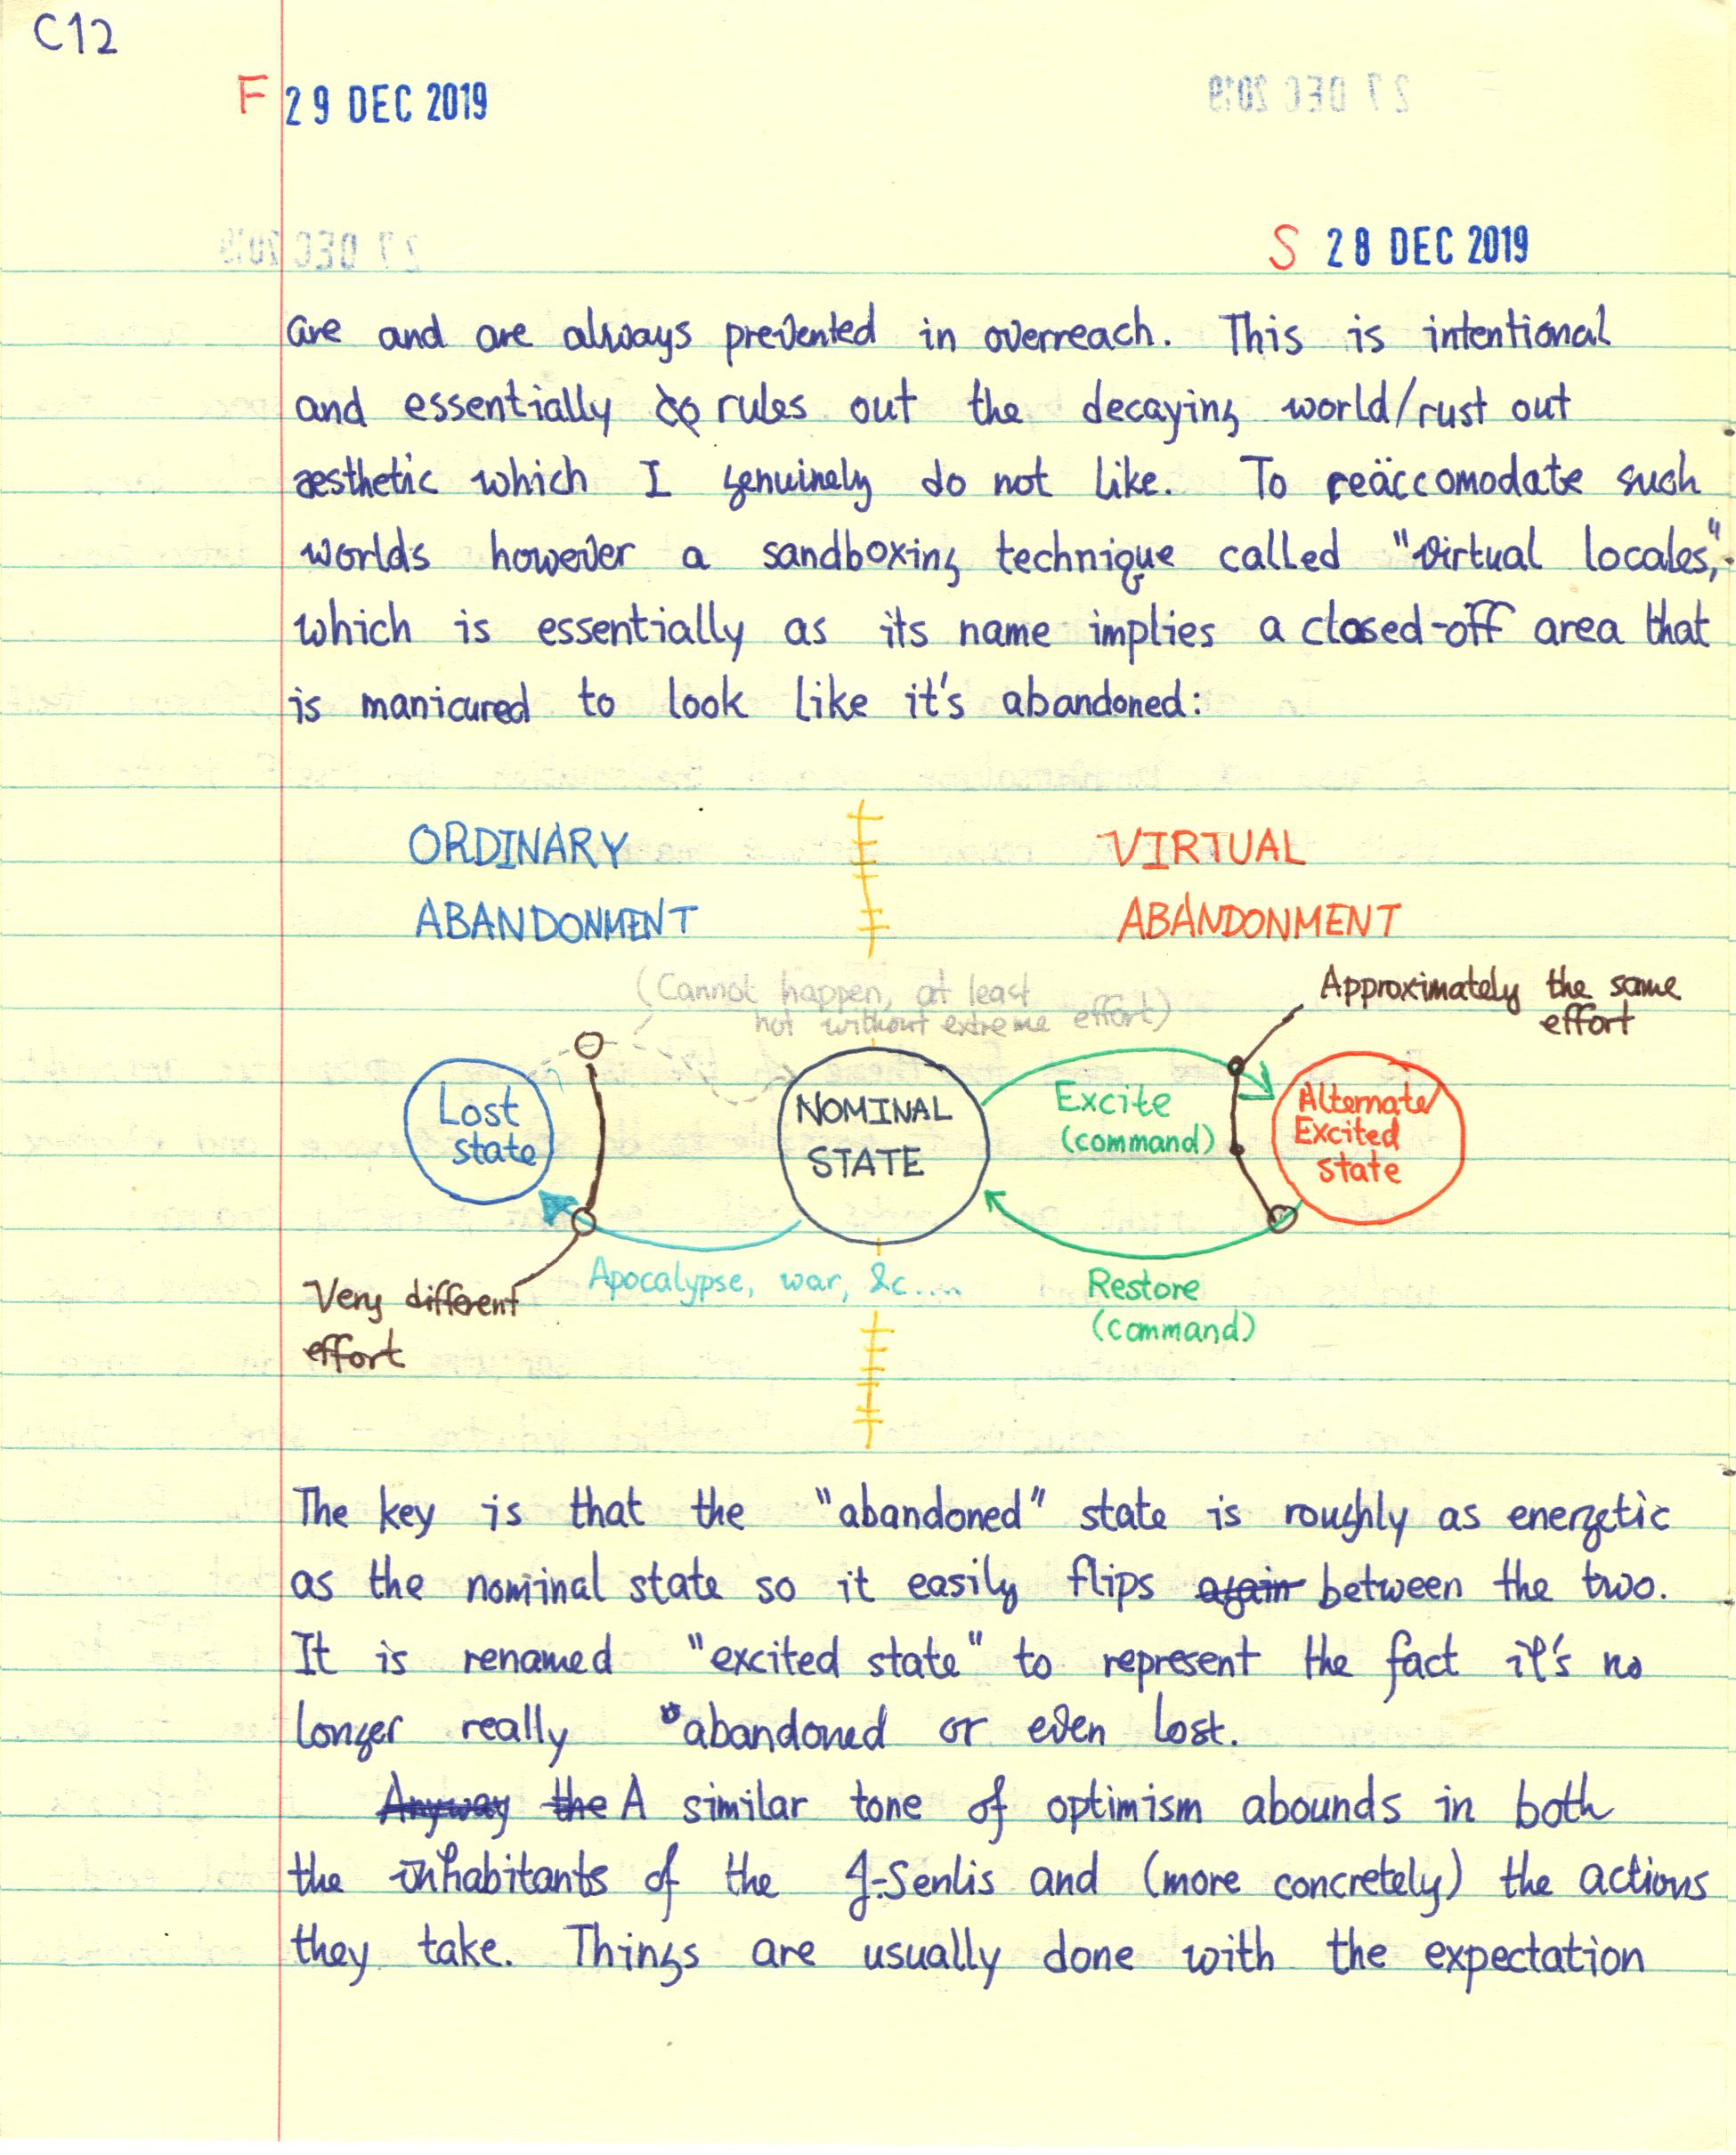 C12
F 29 DEC 2019
S 28 DEC 2019
are and are always prevented in overreach. This is intentional
and essentially rules out the decaying world/rust out
æsthetic which I genuinely do not like. To reäccomodate such
worlds however a sandboxing technique called "virtual locales,"
which is essentially as its name implies a closed-off area that
is manicured to look like it's abandoned:
ORDINARY
ABANDONMENT
VIRTUAL
ABANDONMENT
(Cannot happen, at least
not without extreme effort)
Approximately the same
effort
Lost
state
NOMINAL
STATE
Excite
(command)
Alternate/
Excited
state
Very different
effort
Apocalypse, war, &c....
Restore
(command)
The key is that the "abandoned" state is roughly as energetic
as the nominal state so it easily flips again between the two.
It is renamed "excited state" to represent the fact it's no
longer really abandoned or even lost.
Anyway the A similar tone of optimism abounds in both
the inhabitants of the J-Senlis and (more concretely) the actions
they take. Things are usually done with the expectation